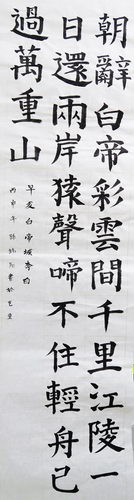 朝辭白帝彩雲間千里江陵一
日還兩岸猿聲啼不住輕舟已
過萬重山
早发白帝城李白
丙申年書於